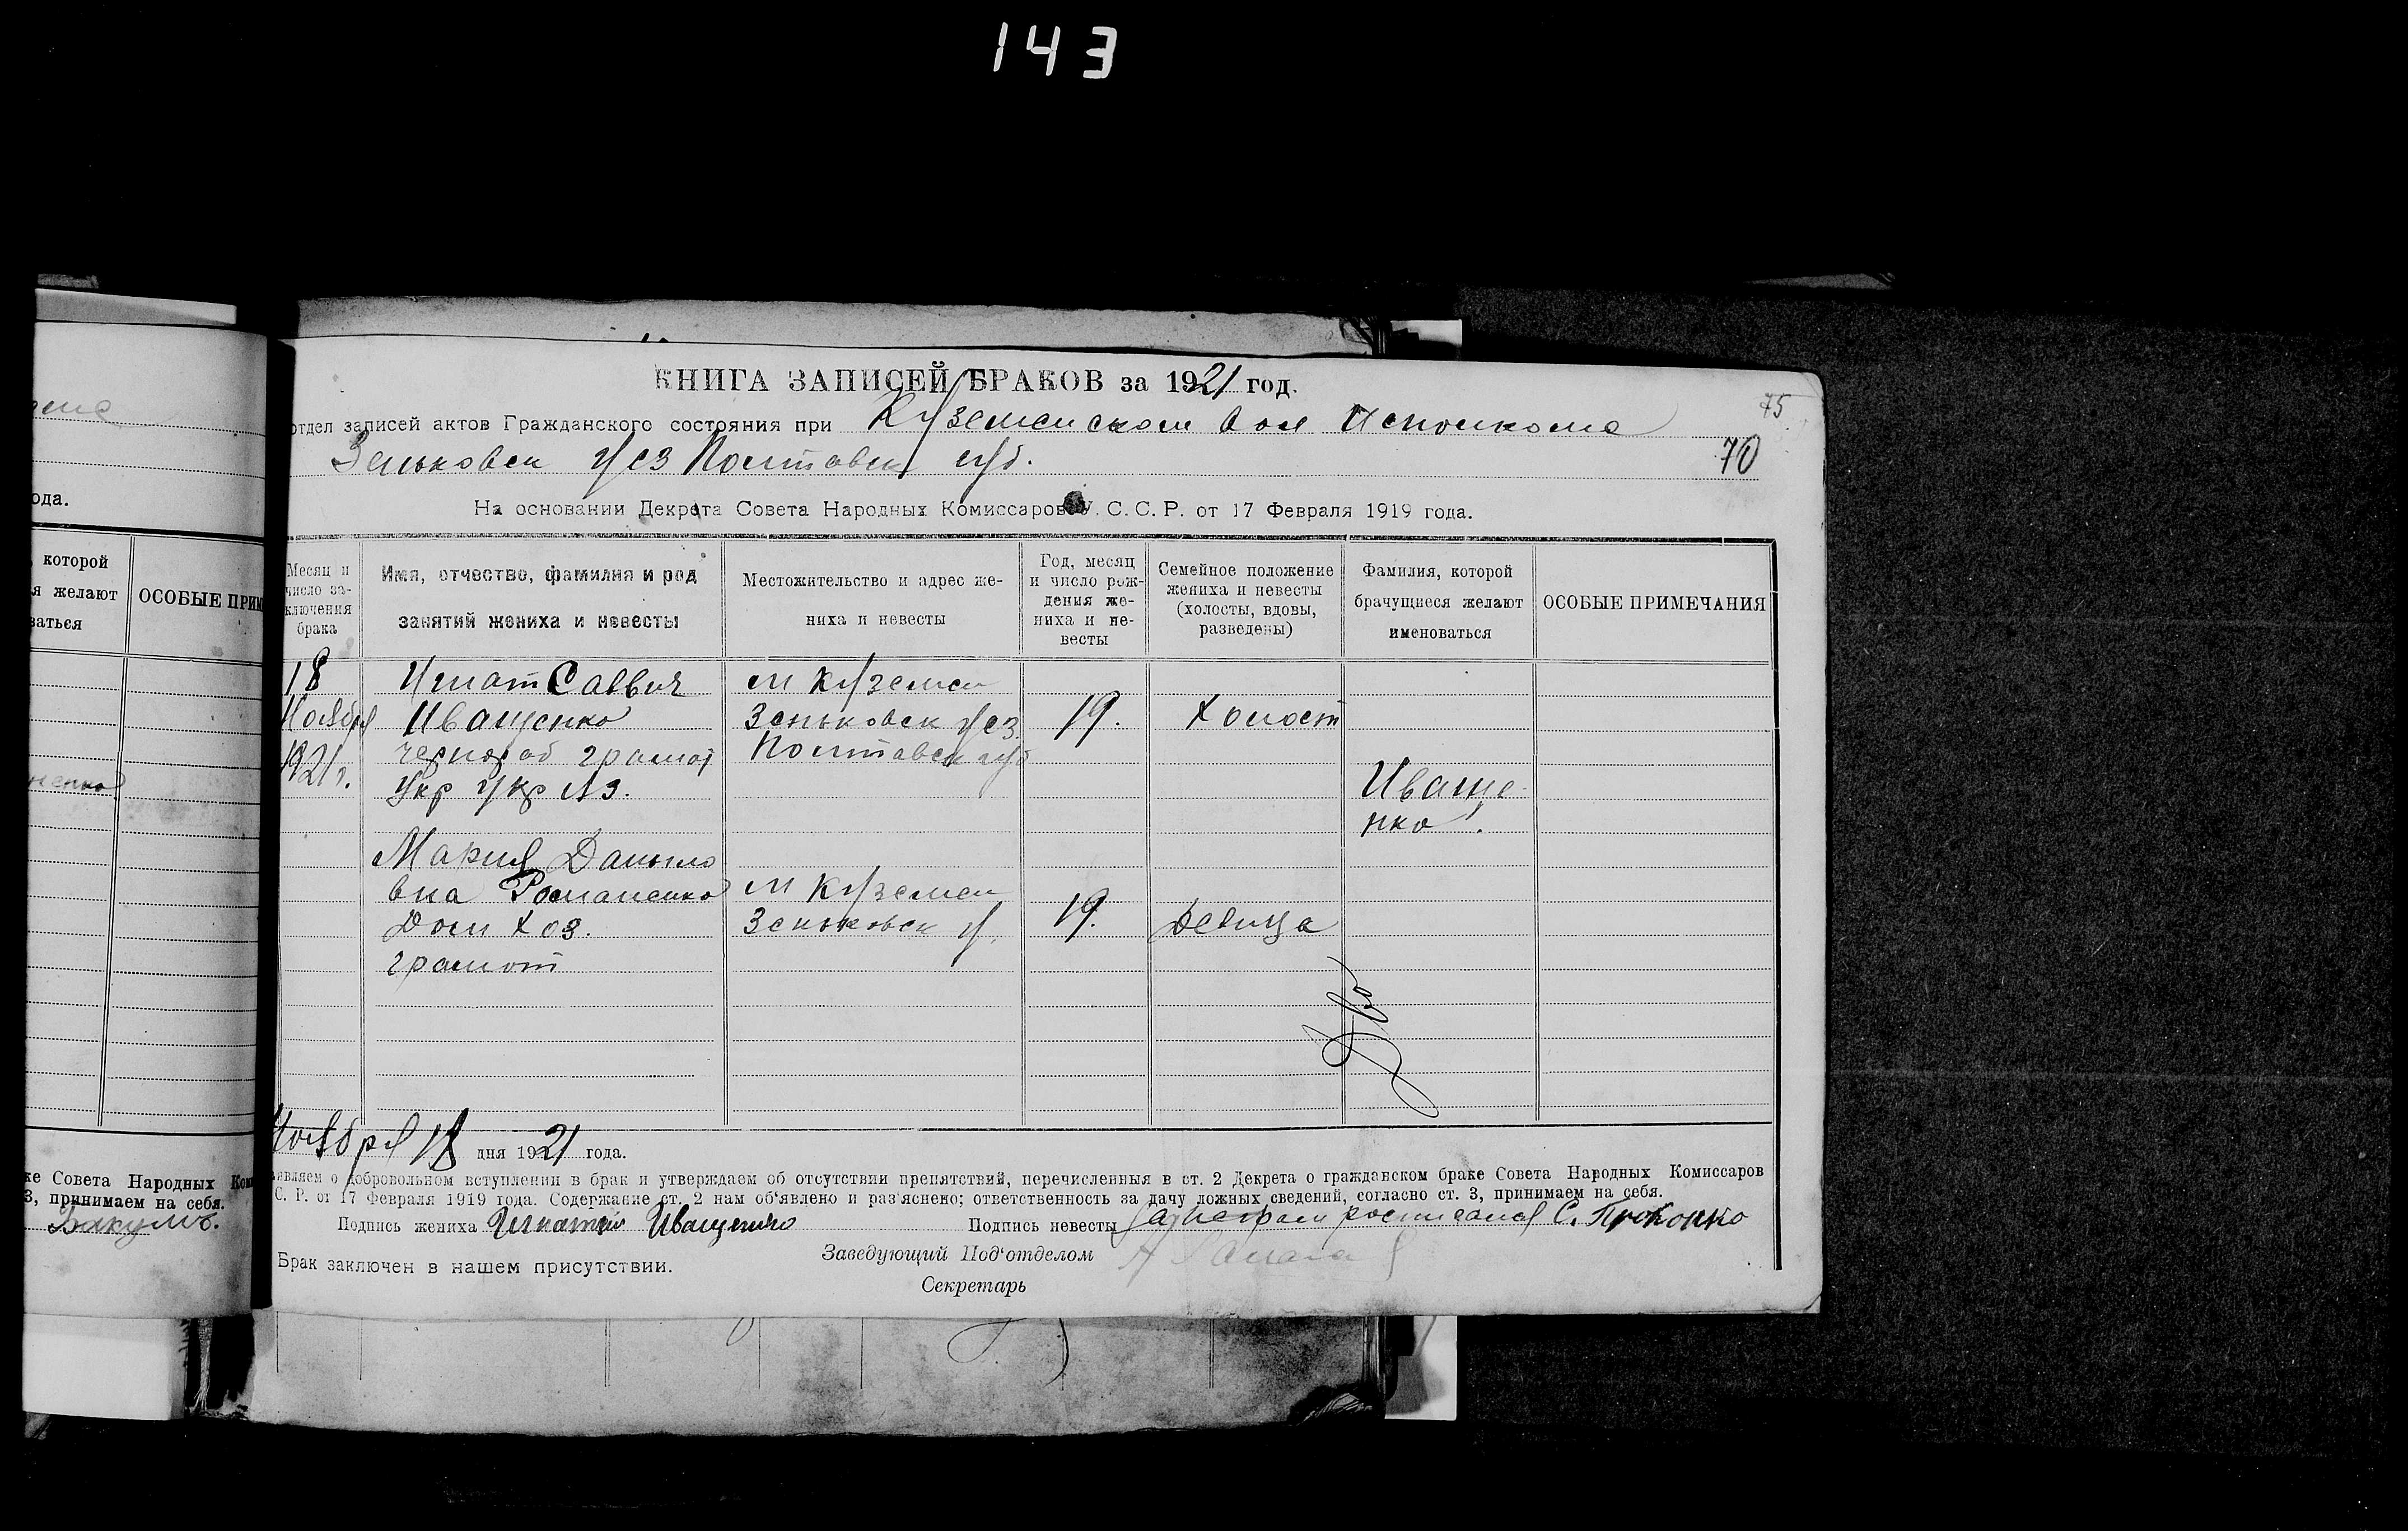 143
КНИГА ЗАПИСЕЙ БРАКОВ за 1921 год.
75
отдел записей актов Гражданского состояния при Куземенском вол Исполкоме
70
Зеньковск уез Полтавск губ.
На основании Декрета Совета Народных Комиссаров У. С. С. Р. от 17 Февраля 1919 года.
ода.
которой
я желают
ваться
ОСОБЫЕ ПРИМ
Месяц и число заключения брака
Имя, отчество, фамилия и род занятий жениха и невесты
Местожительство и адрес жениха и невесты
Год, месяц и число рождения жениха и невесты
Семейное положение жениха и невесты (холосты, вдовы, разведены)
Фамилия, которой брачущиеся желают именоваться
ОСОБЫЕ ПРИМЕЧАНИЯ
18 Игнат Саввич м Куземен
Ноября Иващенко Зеньковск уез 19. Холост
1921г. чернораб грамот Полтавск губ
Укр Укр Яз.
Иваще
нко.
Мария Данило
вна Романенко м Куземен
Дом Хоз. Зеньковск у. 19. Девица
грамот
Ноября 18 дня 1921 года.
авляем о добровольном вступлении в брак и утверждаем об отсутствии препятствий, перечисленныя в ст. 2 Декрета о гражданском браке Совета Народных Комиссаров
С. Р. от 17 Февраля 1919 года. Содержание ст. 2 нам об'явлено и раз'яснено; ответственность за дачу ложных сведений, согласно ст. 3, принимаем на себя.
Подпись жениха Игнатий Иващенко Подпись невесты росписался С.
Заведующий Под'отделом
Брак заключен в нашем присутствии.
Секретарь
ке Совета Народных Ком
3, принимаем на себя.
Бакумъ.